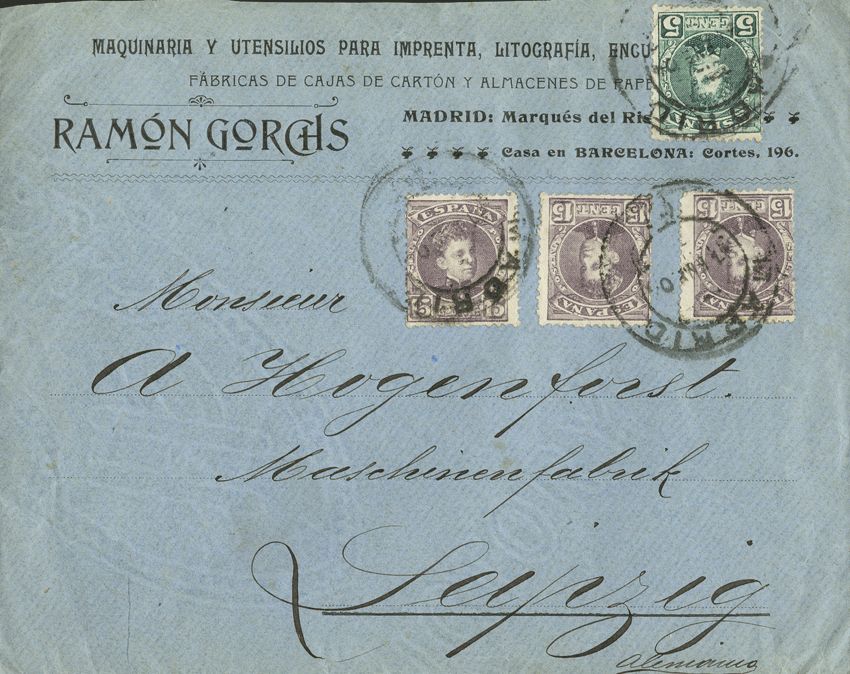 MAQUINARIA Y UTENSILIOS PARA IMPRENTA, LITOGRAFÍA, ENCU
FÁBRICAS DE CAJAS DE CARTÓN Y ALMACENES DE PAPE
RAMÓN GORCHS
MADRID: Marqués del Ris
Casa en BARCELONA: Cortes, 196.
5 CENT 5
ESPAÑA
15 CENT 15
ESPAÑA
15 CENT 15
MADRID
Monsieur
A Hogenforst.
Maschinenfabrik
Leipzig
Alemania